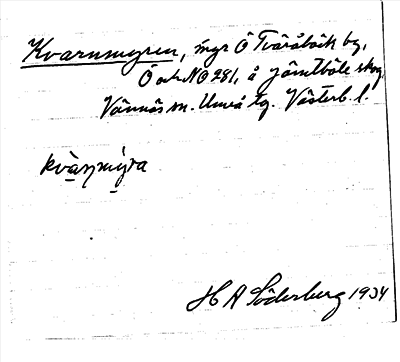 Kvarnmyren, myr Ö Tväråbäck by,
Ö och NO 281, å Jämtböle skog
Vännäs sn. Umeå tg. Västerb. l.
kvaṇmyra
H A Söderberg 1934